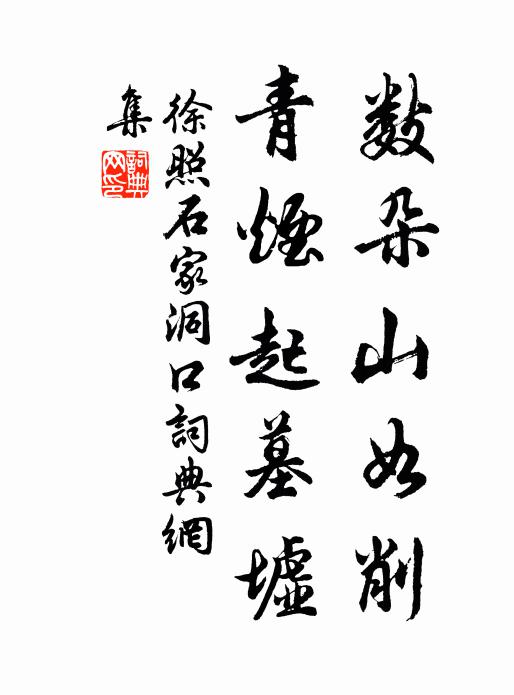 數朵山如削
青煙起墓墟
徐照石家洞口詞典網
集
詞典網印